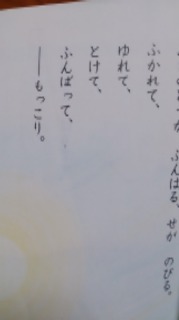 ふんばる、せが のびる。
ふかれて、
ゆれて、
とけて、
ふんばって、
――もっこり。